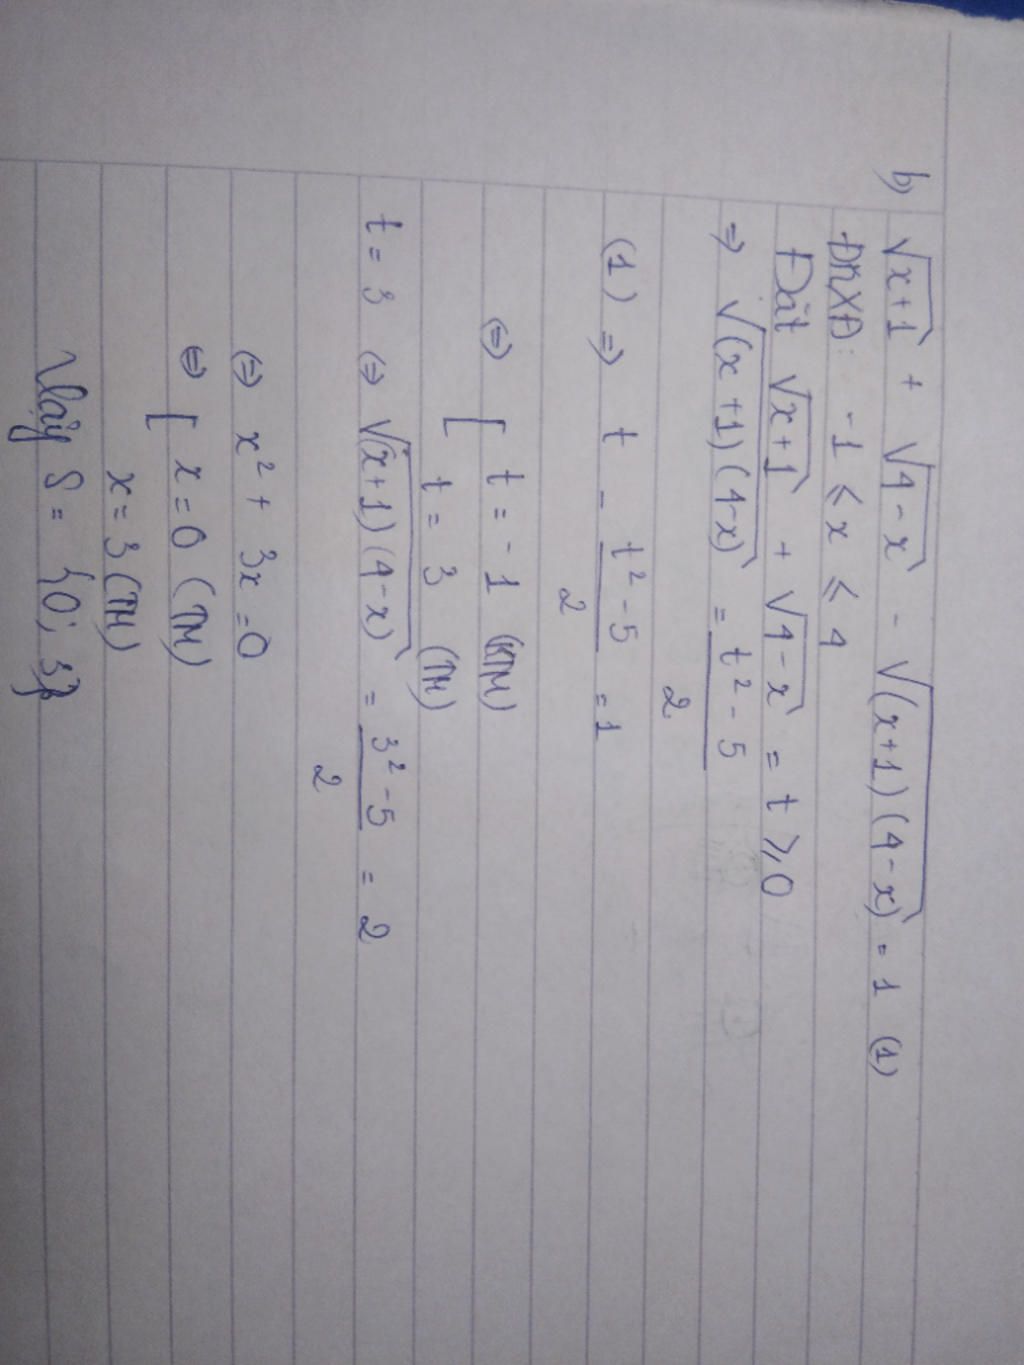 b) √(x+1) + √(4-x) - √((x+1)(4-x)) = 1 (1)
ĐKXĐ: -1 ≤ x ≤ 4
Đặt √(x+1) + √(4-x) = t ≥ 0
⇒ √((x+1)(4-x)) = (t² - 5)/2
(1) ⇒ t - (t² - 5)/2 = 1
⇔ [ t = -1 (KTM)
t = 3 (TM)
t = 3 ⇔ √((x+1)(4-x)) = (3² - 5)/2 = 2
⇔ x² + 3x = 0
⇔ [ x = 0 (TM)
x = 3 (TM)
Vậy S = {0; 3}